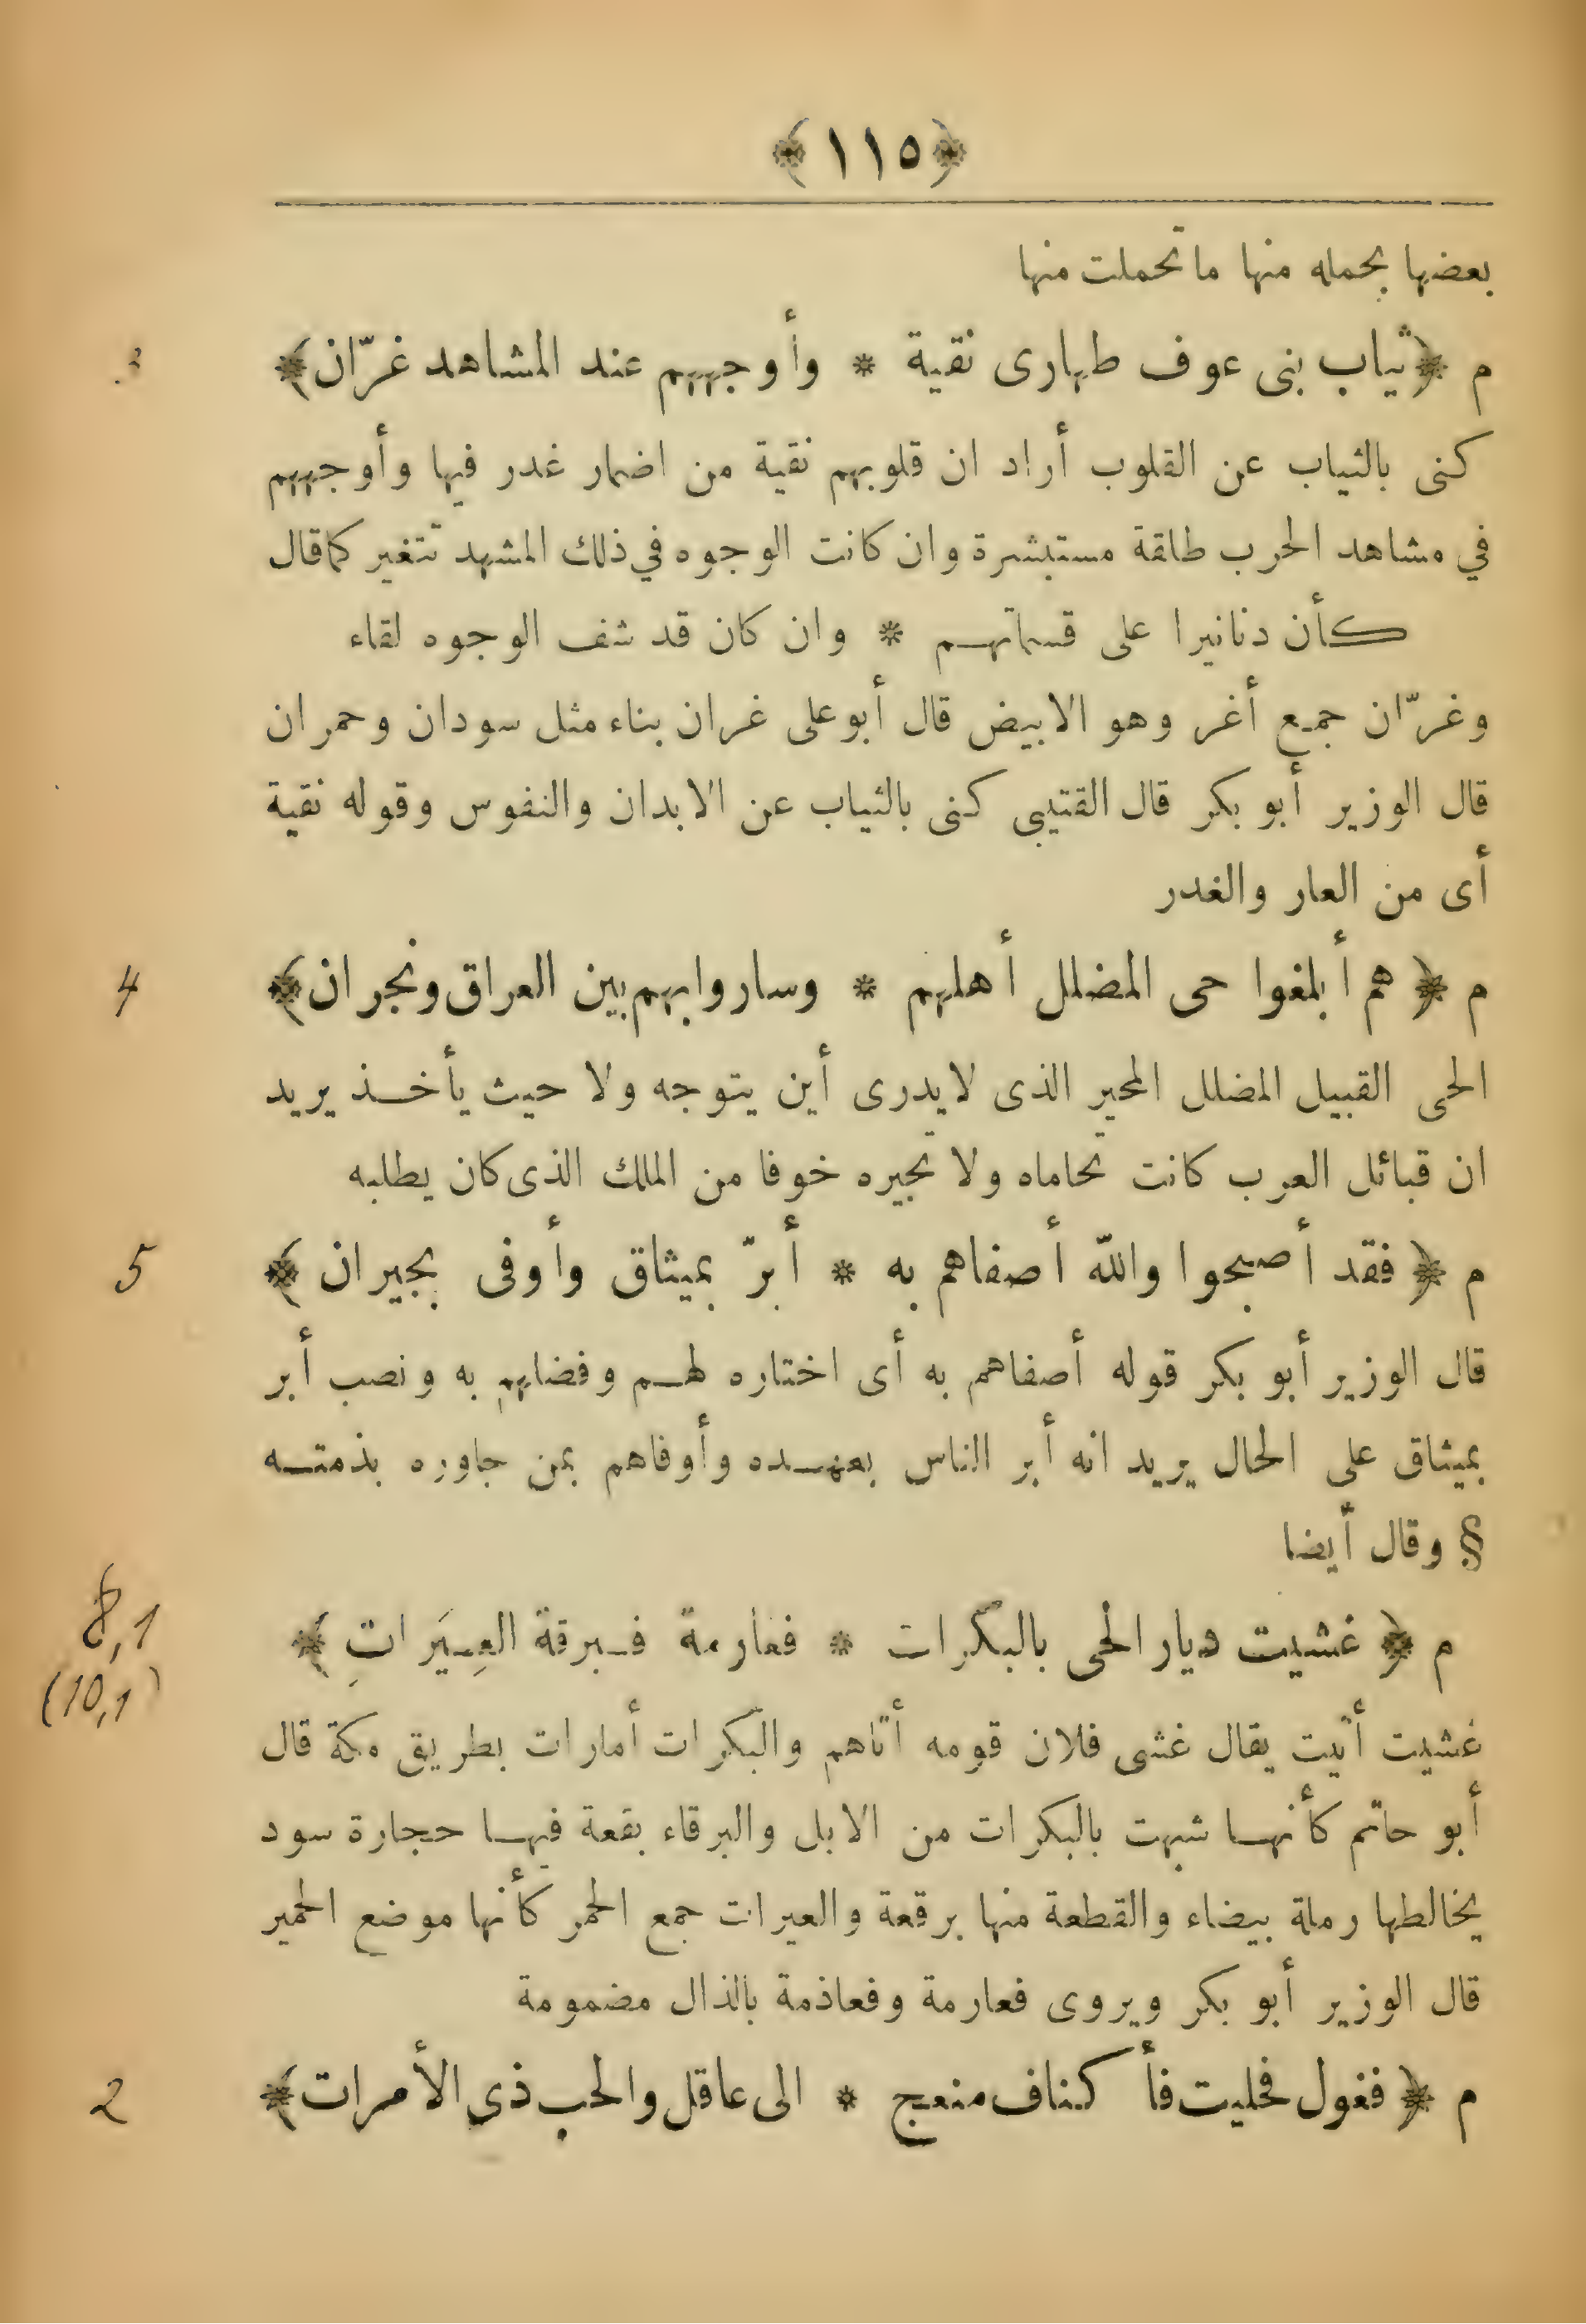 ﴿١١٥﴾
بعضها بحمله منها ماتحملت منها
م ﴿ثياب بنى عوف طهارى نقية * وأوجههم عند المشاهد غرّان﴾
3
كنى بالثياب عن القلوب أراد ان قلوبهم نقية من اضمار غدر فيها وأوجههم
في مشاهد الحرب طلقة مستبشرة وان كانت الوجوه في ذلك المشهد تتغير كماقال
كأن دنانيرا على قسماتهم * وان كان قد شف الوجوه لقاء
وغرّان جمع أغر وهو الابيض قال أبوعلى غران بناء مثل سودان وحمران
قال الوزير أبو بكر قال القتيبى كنى بالثياب عن الابدان والنفوس وقوله نقية
أى من العار والغدر
م ﴿هم أبلغوا حى المضلل أهلهم * وساروابهم بين العراق ونجران﴾
4
الحى القبيل المضلل المحير الذى لايدرى أين يتوجه ولا حيث يأخذ يريد
ان قبائل العرب كانت تحاماه ولا تجيره خوفا من الملك الذى كان يطلبه
م ﴿فقد أصبحوا والله أصفاهم به * أبرّ بميثاق وأوفى بجيران﴾
5
قال الوزير أبو بكر قوله أصفاهم به أى اختاره لهم وفضلهم به ونصب أبر
بميثاق على الحال يريد انه أبر الناس بعهده وأوفاهم بمن جاوره بذمته
§ وقال أيضا
م ﴿غشيت ديار الحى بالبكرات * فعارمة فبرقة العِيَراتِ﴾
8,1
(10,1)
غشيت أتيت يقال غشى فلان قومه أتاهم والبكرات أمارات بطريق مكة قال
أبو حاتم كأنها شبهت بالبكرات من الابل والبرقاء بقعة فيها حجارة سود
يخالطها رملة بيضاء والقطعة منها برقعة والعيرات جمع الحمر كأنها موضع الحمير
قال الوزير أبو بكر ويروى فعارمة وفعاذمة بالذال مضمومة
م ﴿فغول فحليت فأكناف منعج * الى عاقل والحب ذي الأمرات﴾
2